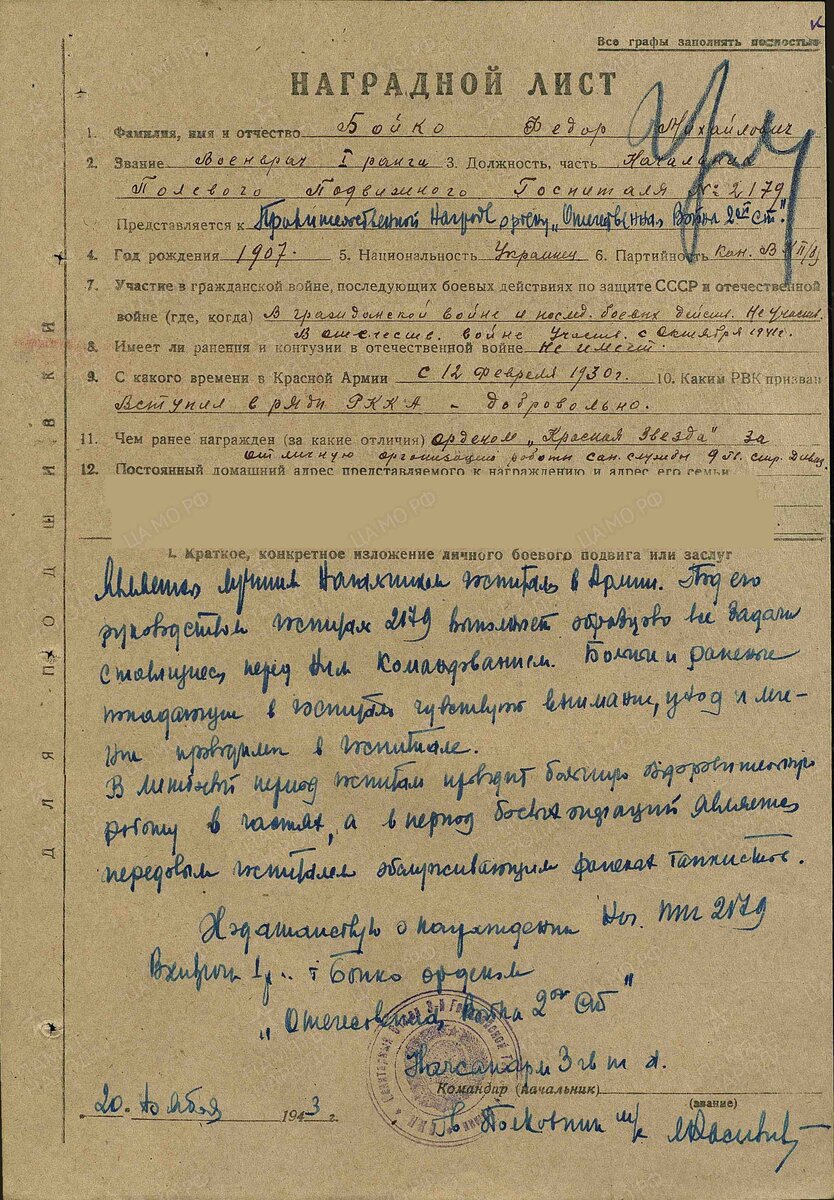 Все графы заполнять полностью
НАГРАДНОЙ ЛИСТ
1. Фамилия, имя и отчество Бойко Федор Михайлович
2. Звание Военврач I ранга 3. Должность, часть Начальник
Полевого Подвижного Госпиталя № 2179
Представляется к Правительственной Награде ордену „Отечественная Война 2ой Ст."
4. Год рождения 1907. 5. Национальность Украинец 6. Партийность Кан. В
7. Участие в гражданской войне, последующих боевых действиях по защите СССР и отечественной
войне (где, когда) В гражданской войне и послед. боевых дейст. Не участв.
В отечеств. войне участв. с Октября 1941г.
8. Имеет ли ранения и контузии в отечественной войне Не имеет.
9. С какого времени в Красной Армии с 12 февраля 1930г. 10. Каким РВК призван
Вступил в ряды РККА - добровольно.
11. Чем ранее награжден (за какие отличия) орденом „Красная Звезда" за
отличную организацию работы сан. службы 9
12. Постоянный домашний адрес представляемого к награждению и адрес его семьи
I. Краткое, конкретное изложение личного боевого подвига или заслуг
Является лучшим Начальником госпиталя в Армии. Под его
руководством госпиталь 2179 выполняет образцово все задачи
ставящиеся перед Ним Командованием. Больные и раненые
попадающие в госпиталь чувствуют внимание, уход и лече-
ние в госпитале.
В период госпиталь проводит большую оздоровительную
работу в частях, а в период боевых операций является
передовым госпиталем обслуживающим раненых танкистов.
Ходатайствую о награждении Нач. ППГ 2179
Бойко орденом
„Отечественная Война 2ой Ст"
Начсанарм 3 гв т А.
Командир (начальник)
(звание)
20. Ноября 1943 г.
Полковник м/с
ДЛЯ ПОДШИВКИ
ЦА МО РФ